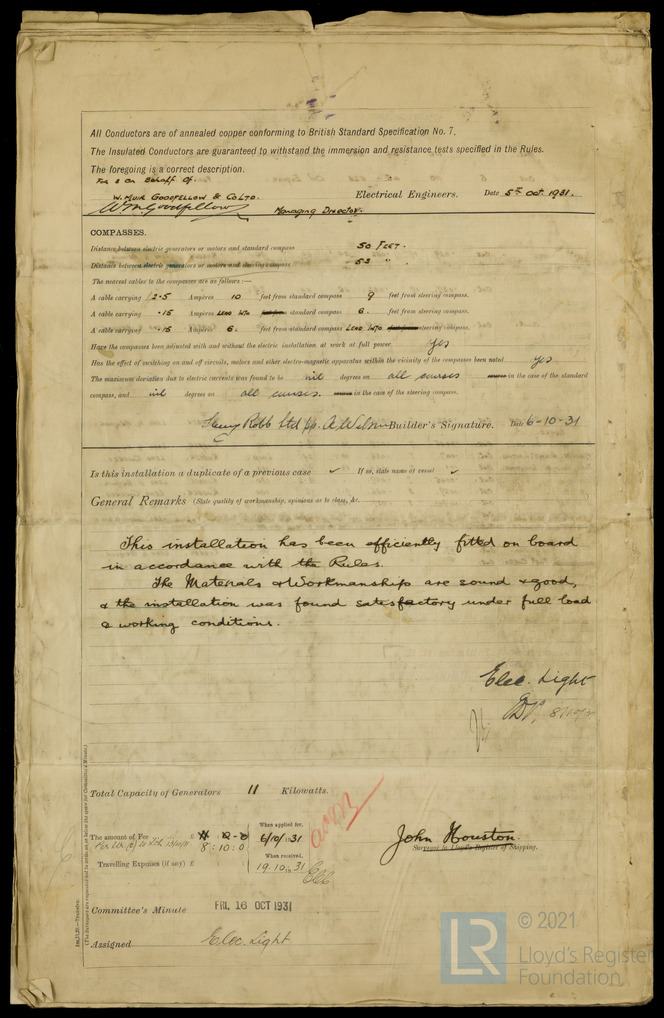 All Conductors are of annealed copper conforming to British Standard Specification No. 7.
The Insulated Conductors are guaranteed to withstand the immersion and resistance tests specified in the Rules.
The foregoing is a correct description.
For & On Behalf Of.
W. Muir Goodfellow & Co Ltd. Electrical Engineers. Date 5th Oct. 1931.
W M Goodfellow Managing Director.
COMPASSES.
Distance between electric generators or motors and standard compass 50 FEET.
Distance between electric generators or motors and steering compass 53 " .
The nearest cables to the compasses are as follows:—
A cable carrying 2.5 Ampères 10 feet from standard compass 9 feet from steering compass.
A cable carrying .15 Ampères LEAD INTO standard compass 6. feet from steering compass.
A cable carrying .15 Ampères 6. feet from standard compass LEAD INTO steering compass.
Have the compasses been adjusted with and without the electric installation at work at full power. yes
Has the effect of switching on and off circuits, motors and other electro-magnetic apparatus within the vicinity of the compasses been noted yes
The maximum deviation due to electric currents was found to be nil degrees on all courses course in the case of the standard
compass, and nil degrees on all courses. course in the case of the steering compass.
Henry Robb Ltd pp. A Wilson Builder's Signature. Date 6-10-31
Is this installation a duplicate of a previous case ✓ If so, state name of vessel ✓
General Remarks (State quality of workmanship, opinions as to class, &c.
This installation has been efficiently fitted on board
in accordance with the Rules.
The Materials & Workmanship are sound & good,
& the installation was found satisfactory under full load
& working conditions.
Elec. Light
Total Capacity of Generators 11 Kilowatts.
The amount of Fee £ 8:10:0
When applied for, 6/10/31
Travelling Expenses (if any) £
When received, 19.10.31
John Houston.
Surveyor to Lloyd's Register of Shipping.
Committee's Minute FRI. 16 OCT 1931
Assigned Elec. Light
© 2021
LR
Lloyd's Register
Foundation